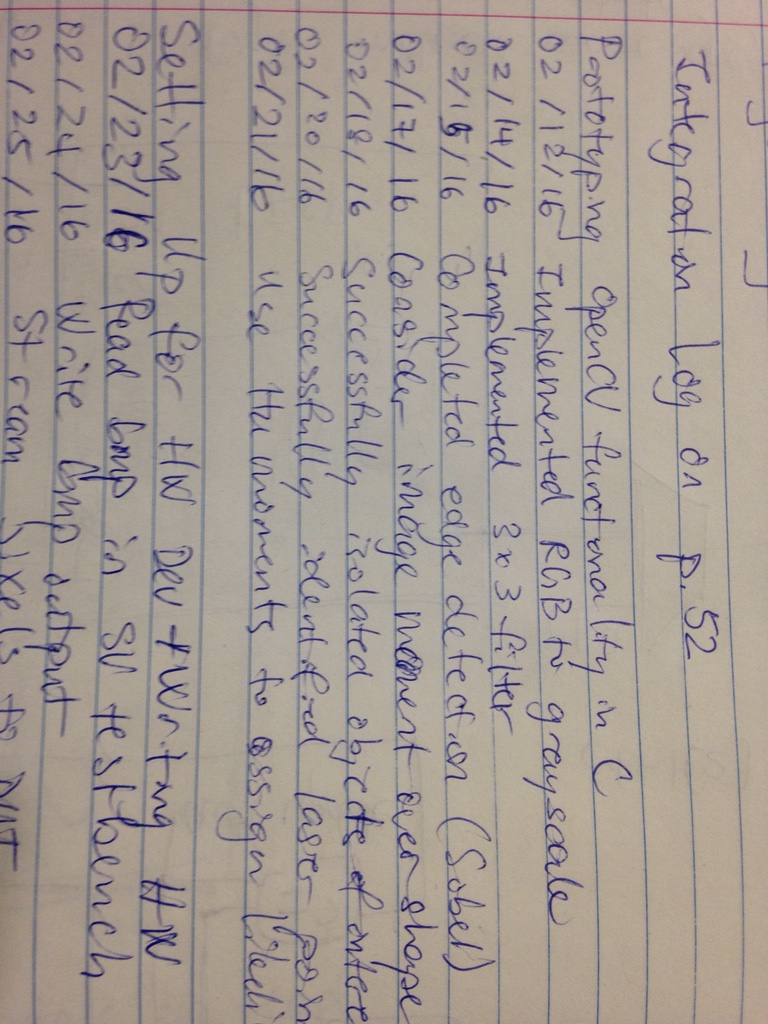 Integration Log on p.52
Prototyping OpenCV functionality in C
02/12/16 Implemented RGB to grayscale
02/14/16 Implemented 3x3 filter
02/15/16 Completed edge detection (Sobel)
02/17/16 Consider image moment over shape
02/18/16 Successfully isolated objects of intere
02/20/16 Successfully identified laser poin
02/21/16 Use Hu moments to assign
Setting Up for HW Dev + Writing HW
02/23/16 Read bmp in SV testbench
02/24/16 Write bmp output
02/25/16 Stream pixels to DUT